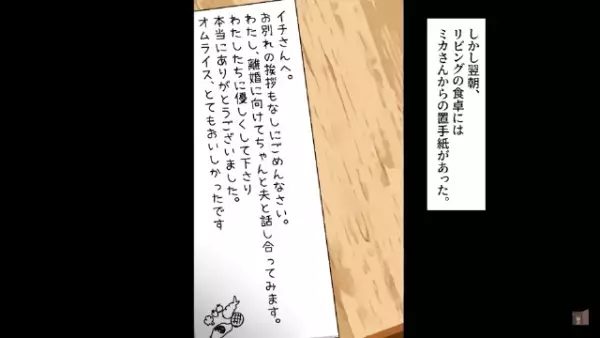 しかし翌朝、
リビングの食卓には
ミカさんからの置手紙があった。
イチさんへ。
お別れの挨拶もなしにごめんなさい。
わたし、離婚に向けてちゃんと夫と話し合ってみます。
わたしたちに優しくして下さり
本当にありがとうございました。
オムライス、とてもおいしかったです